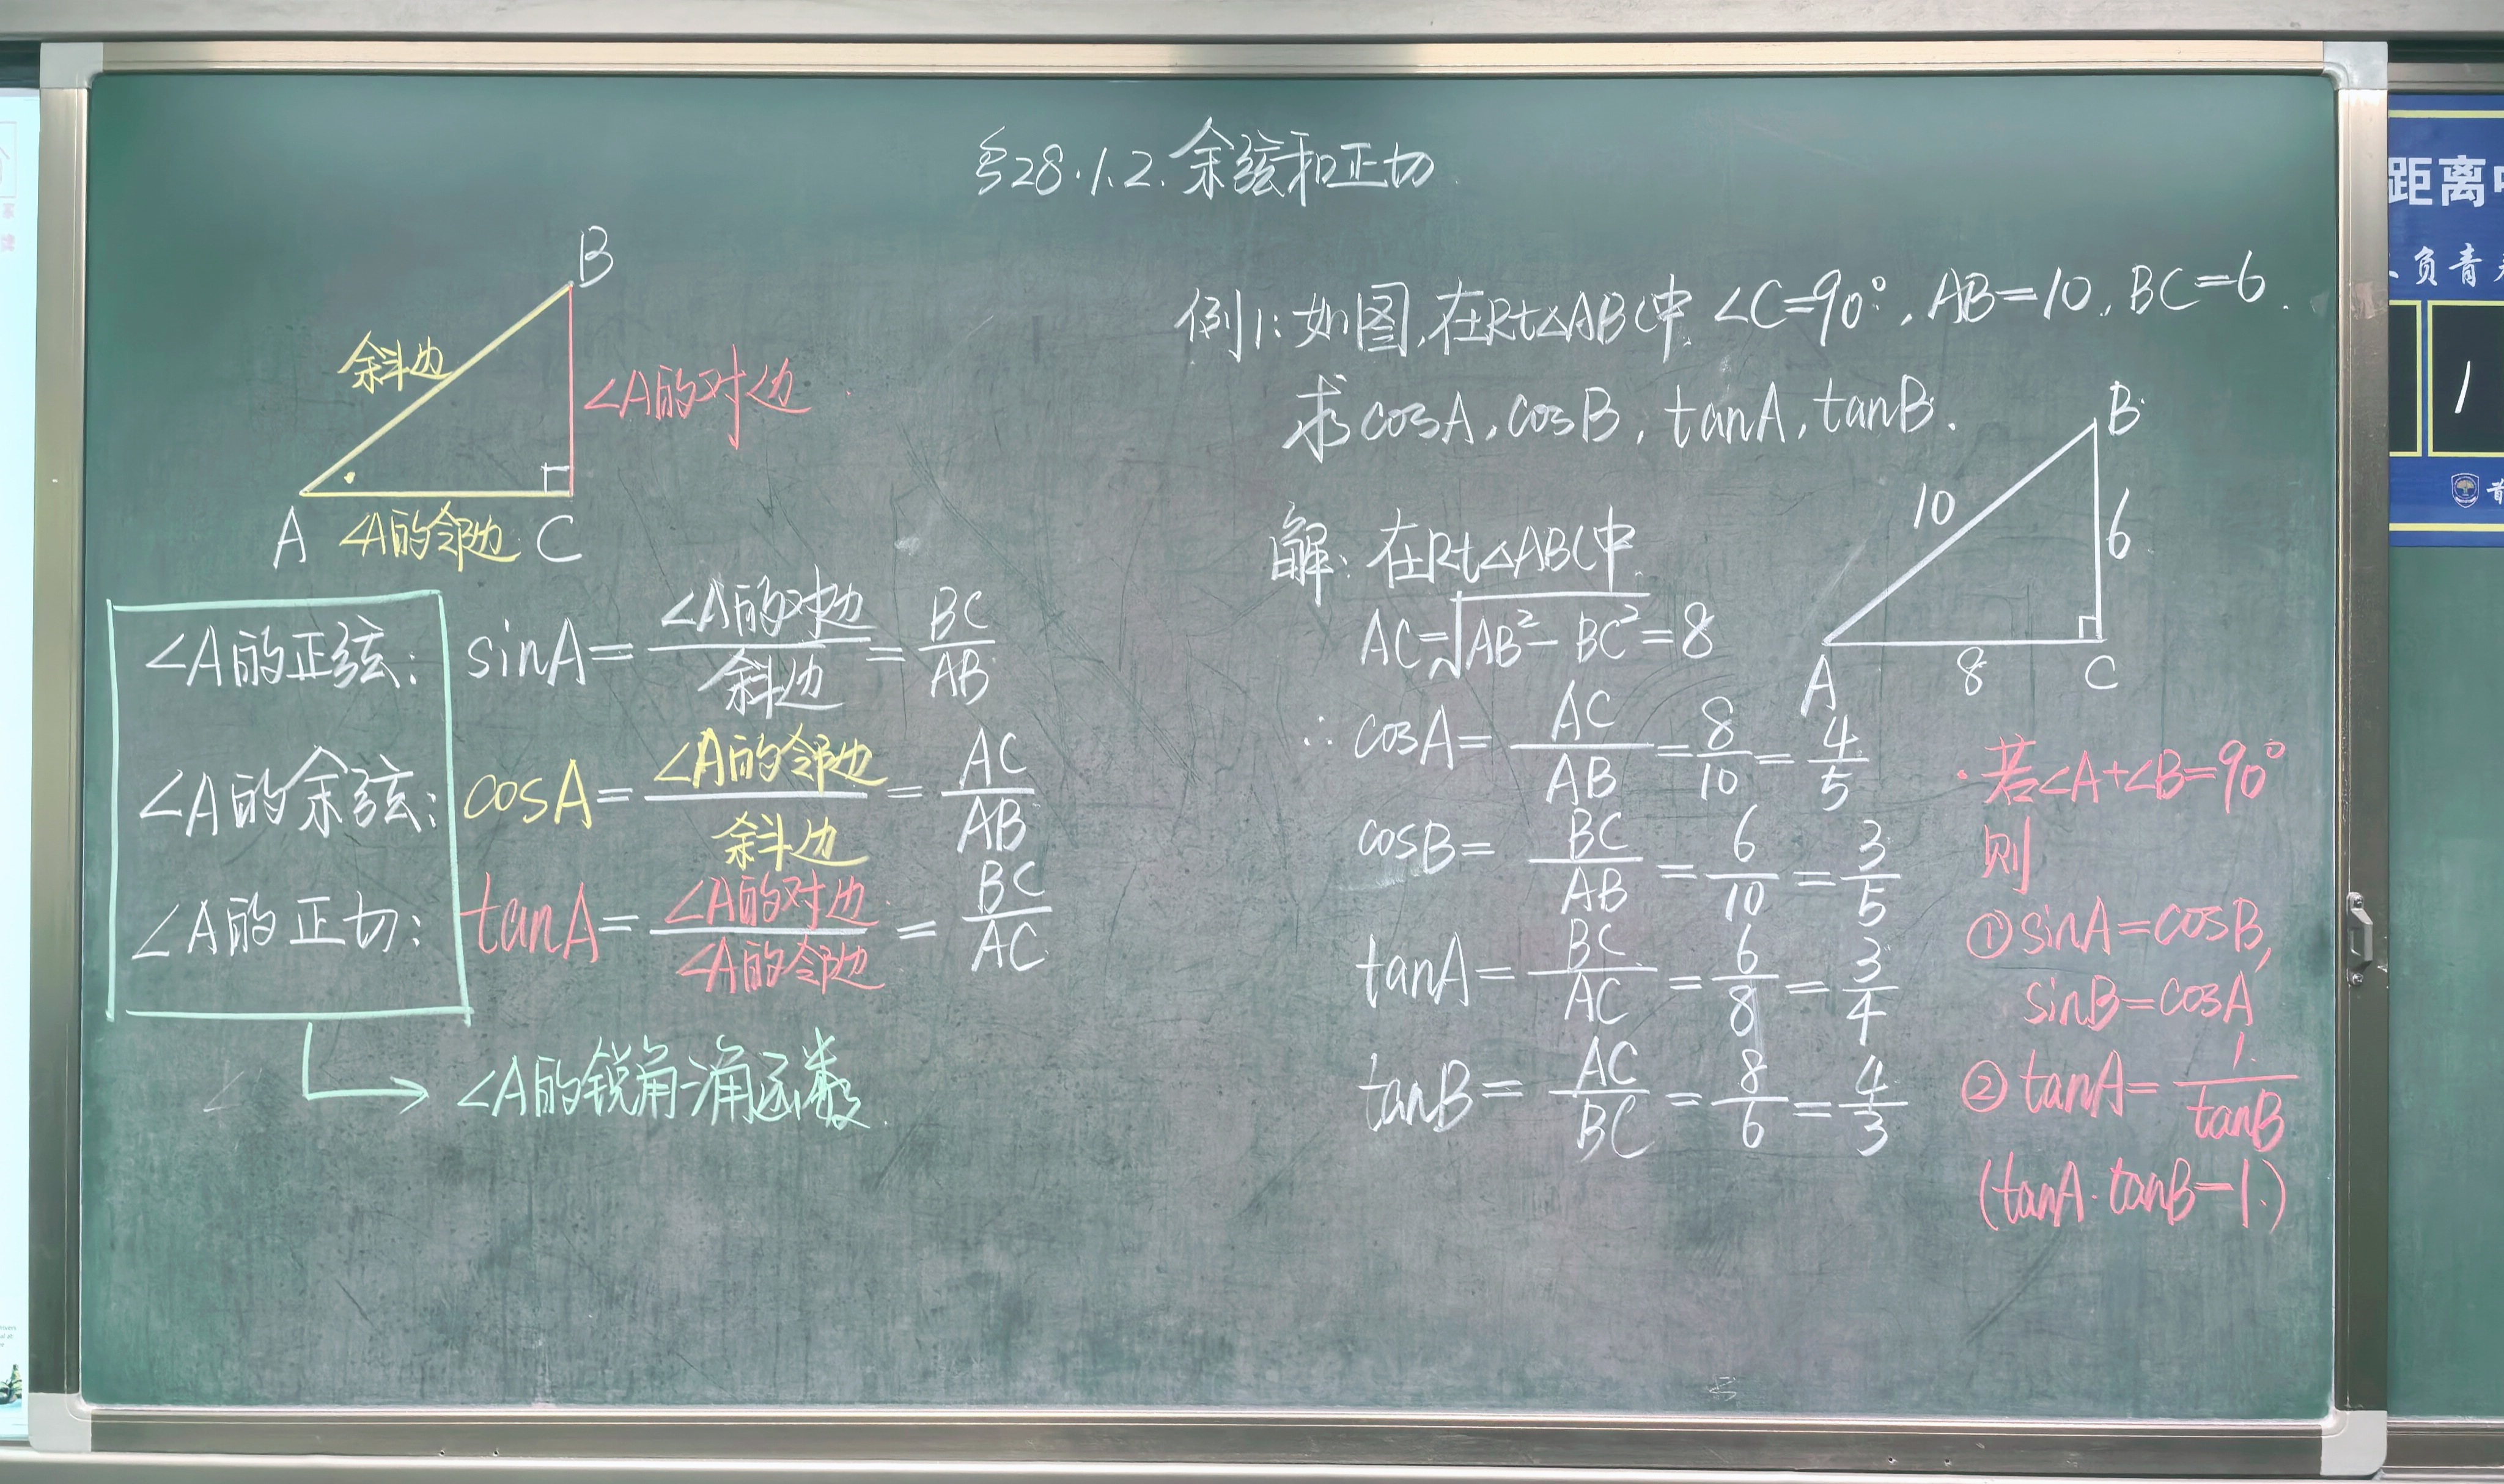 §28.1.2.余弦和正切
B
斜边
∠A的对边
A ∠A的邻边 C
∠A的正弦: sinA=∠A的对边/斜边=BC/AB
∠A的余弦: cosA=∠A的邻边/斜边=AC/AB
∠A的正切: tanA=∠A的对边/∠A的邻边=BC/AC
∠A的锐角三角函数.
例1:如图,在Rt△ABC中,∠C=90°,AB=10,BC=6.
求cosA,cosB,tanA,tanB.
B
10
6
A 8 C
解:在Rt△ABC中
AC=√AB²-BC²=8
∴cosA=AC/AB=8/10=4/5
cosB=BC/AB=6/10=3/5
tanA=BC/AC=6/8=3/4
tanB=AC/BC=8/6=4/3
·若∠A+∠B=90°
则
①sinA=cosB,
sinB=cosA
②tanA=1/tanB
(tanA·tanB=1.)
距离
负青
1